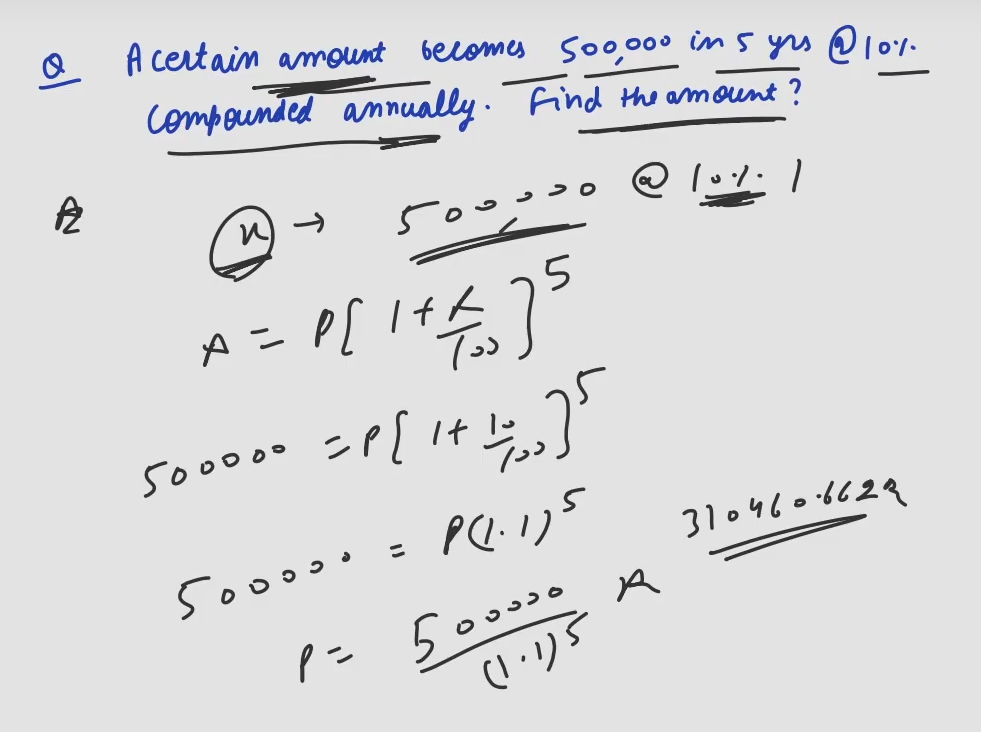 Q A certain amount becomes 500,000 in 5 yrs @ 10%
compounded annually. Find the amount?
A x → 500000 @ 10% 1
A = P[1+r/100]^5
500000 = P[1+10/100]^5
500000 = P(1.1)^5
310460.662
P = 500000/(1.1)^5 A